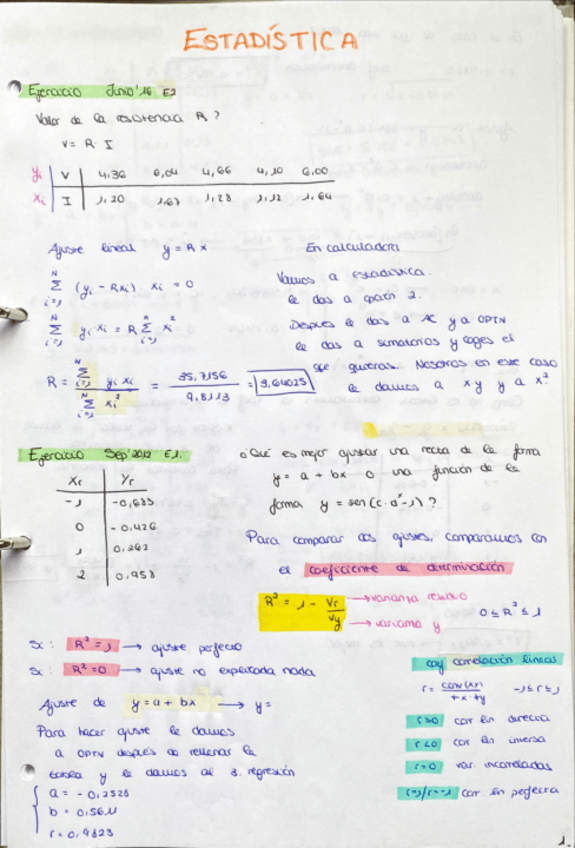 ESTADÍSTICA
Ejercicio Junio'16 E2
Valor de la resistencia R?
V = R · I
yi | V | 4,36 6,04 4,66 4,10 6,00
xi | I | 1,20 1,67 1,28 1,12 1,64
Ajuste lineal y = R x
N Σ i=1 (yi - Rxi) · xi = 0
N Σ i=1 yi xi = R n Σ i=1 xi²
R = N Σ i=1 yi xi / N Σ i=1 xi² = 35,7156 / 9,8113 = 3,64025
En calculadora
Vamos a estadística.
le das a opción 2.
Después le das a AC y a OPTN
le das a sumatorios y coges el
que quieras. Nosotros en este caso
le damos a xy y a x²
Ejercicio Sep'2012 E1.
Xi | Yi
-1 | -0,685
0 | -0,426
1 | 0,262
2 | 0,958
¿Qué es mejor ajustar una recta de la forma
y = a + bx o una función de la
forma y = sen(c·aˣ-1)?
Para comparar dos ajustes, comparamos con
el coeficiente de determinación
R² = 1 - Vr / Vy → varianza residuo
→ varianza y
0 ≤ R² ≤ 1
Si: R² = 1 → ajuste perfecto
Si: R² = 0 → ajuste no explicada nada
Ajuste de y = a + bx → y =
Para hacer ajuste le damos
a OPTN después de rellenar la
tabla y le damos al 3. regresión
a = -0,2528
b = 0,5611
r = 0,9823
coef correlación lineal
-1 ≤ r ≤ 1
r>0 cor lin directa
r<0 cor lin inversa
r=0 var. incorreladas
r=1/r=-1 cor. lin perfecta
1.